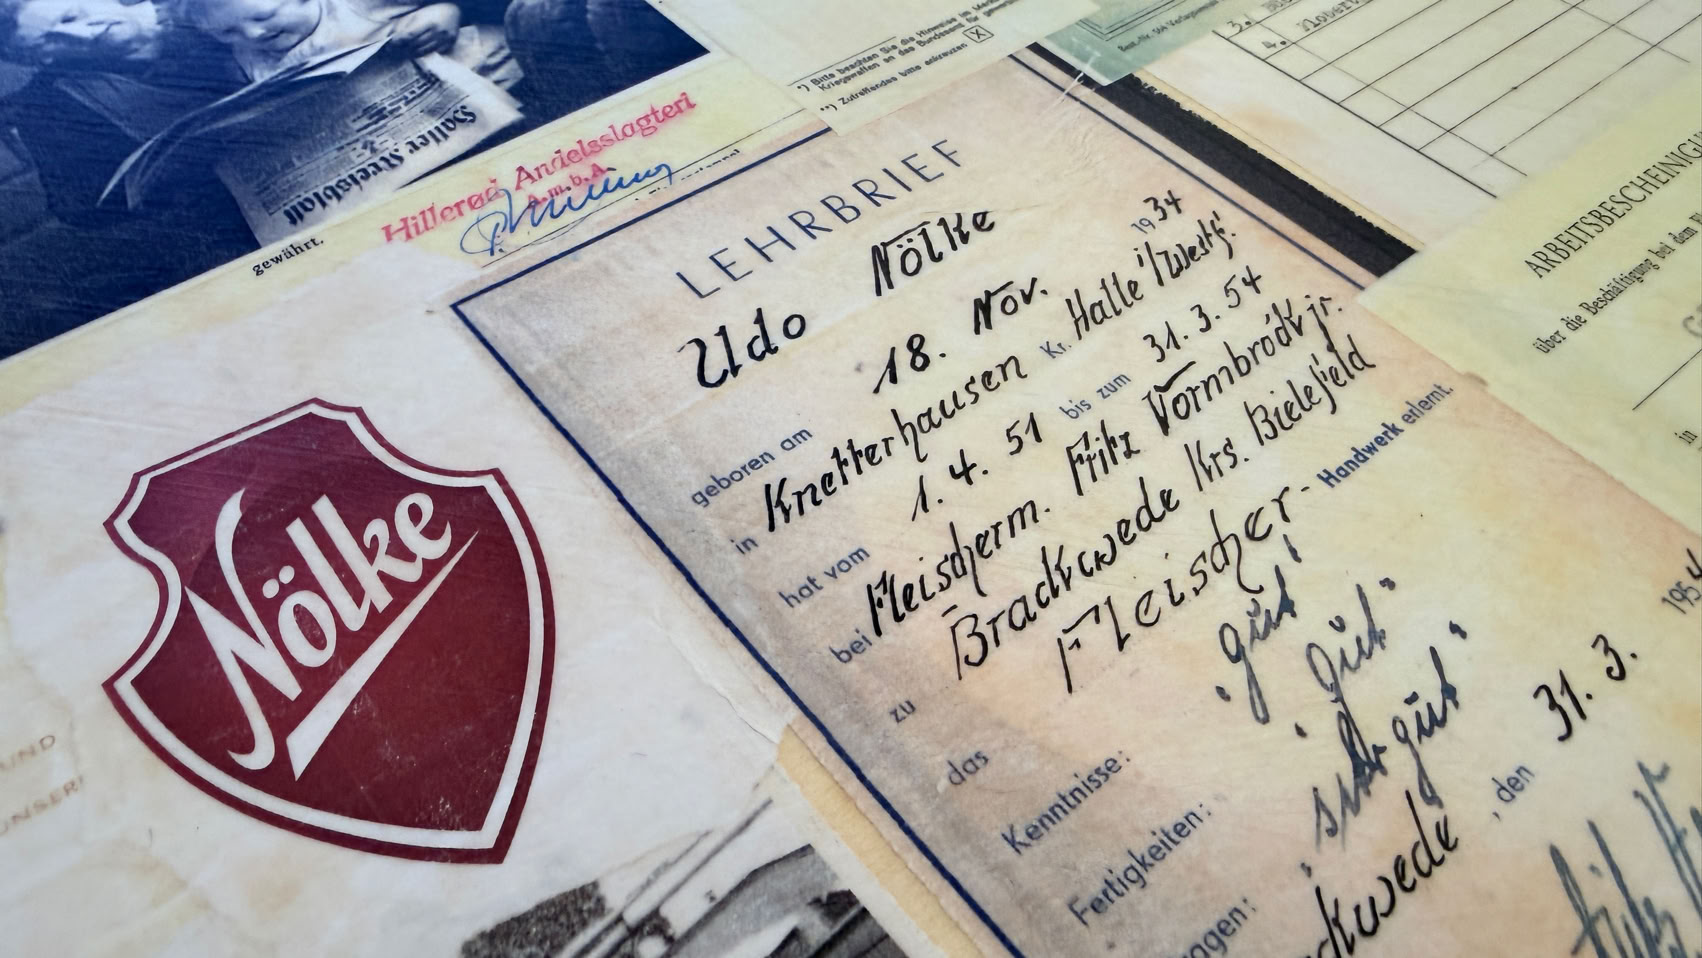 *) Bitte beachten Sie die Hinweise im
Kriegswaffen an das Bundesamt für
**) Zutreffendes bitte ankreuzen X
3.
4.
Haller Kreisblatt
Hillerød Andelsslagteri
A.m.b.A.
gewährt.
ARBEITSBESCHEINIGU
über die Beschäftigung bei dem
in
Nölke
UND
UNSER
LEHRBRIEF
Udo Nölke
geboren am 18. Nov. 1934
in Knetterhausen Kr. Halle i/Westf.
hat vom 1. 4. 51 bis zum 31. 3. 54
bei Fleischerm. Fritz Vormbrock jr.
zu Brackwede Krs. Bielefeld
das Fleischer- Handwerk erlernt.
Kenntnisse: "gut"
Fertigkeiten: "gut"
ngen: "sehr gut"
ckwede, den 31. 3. 1954